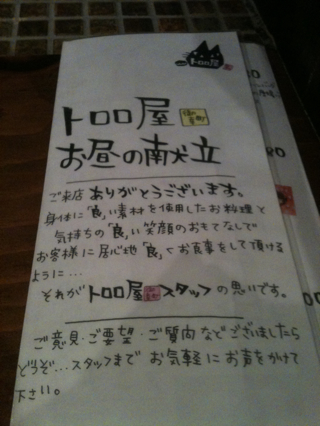 トロロ屋
トロロ屋
お昼の献立
ご来店 ありがとうございます。
身体に「良」い素材を使用したお料理と
気持ちの「良」い笑顔のおもてなしで
お客様に居心地「良」くお食事をして頂ける
ように…
それがトロロ屋スタッフの思いです。
ご意見・ご要望・ご質向などございましたら
どうぞ…スタッフまで お気軽にお声をかけて
下さい。